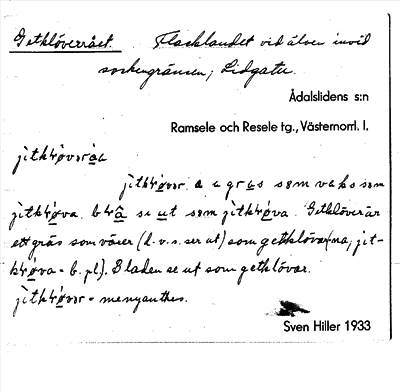 Getklöverrået. Flacklandet vid älven invid
sockengränsen; Lidgatu.
Ådalslidens s:n
Ramsele och Resele tg., Västernorrl. l.
jitkløveråa
jitkløver a u gras sem vaks sem
jitkløva. brå se ut sem jitkløva. Getklöver är
ett gräs som växer (d. v. s. ser ut) som getklöva(rna; jit-
kløva = b. pl). Bladen se ut som getklövar.
jitkløver = menyanthes.
Sven Hiller 1933